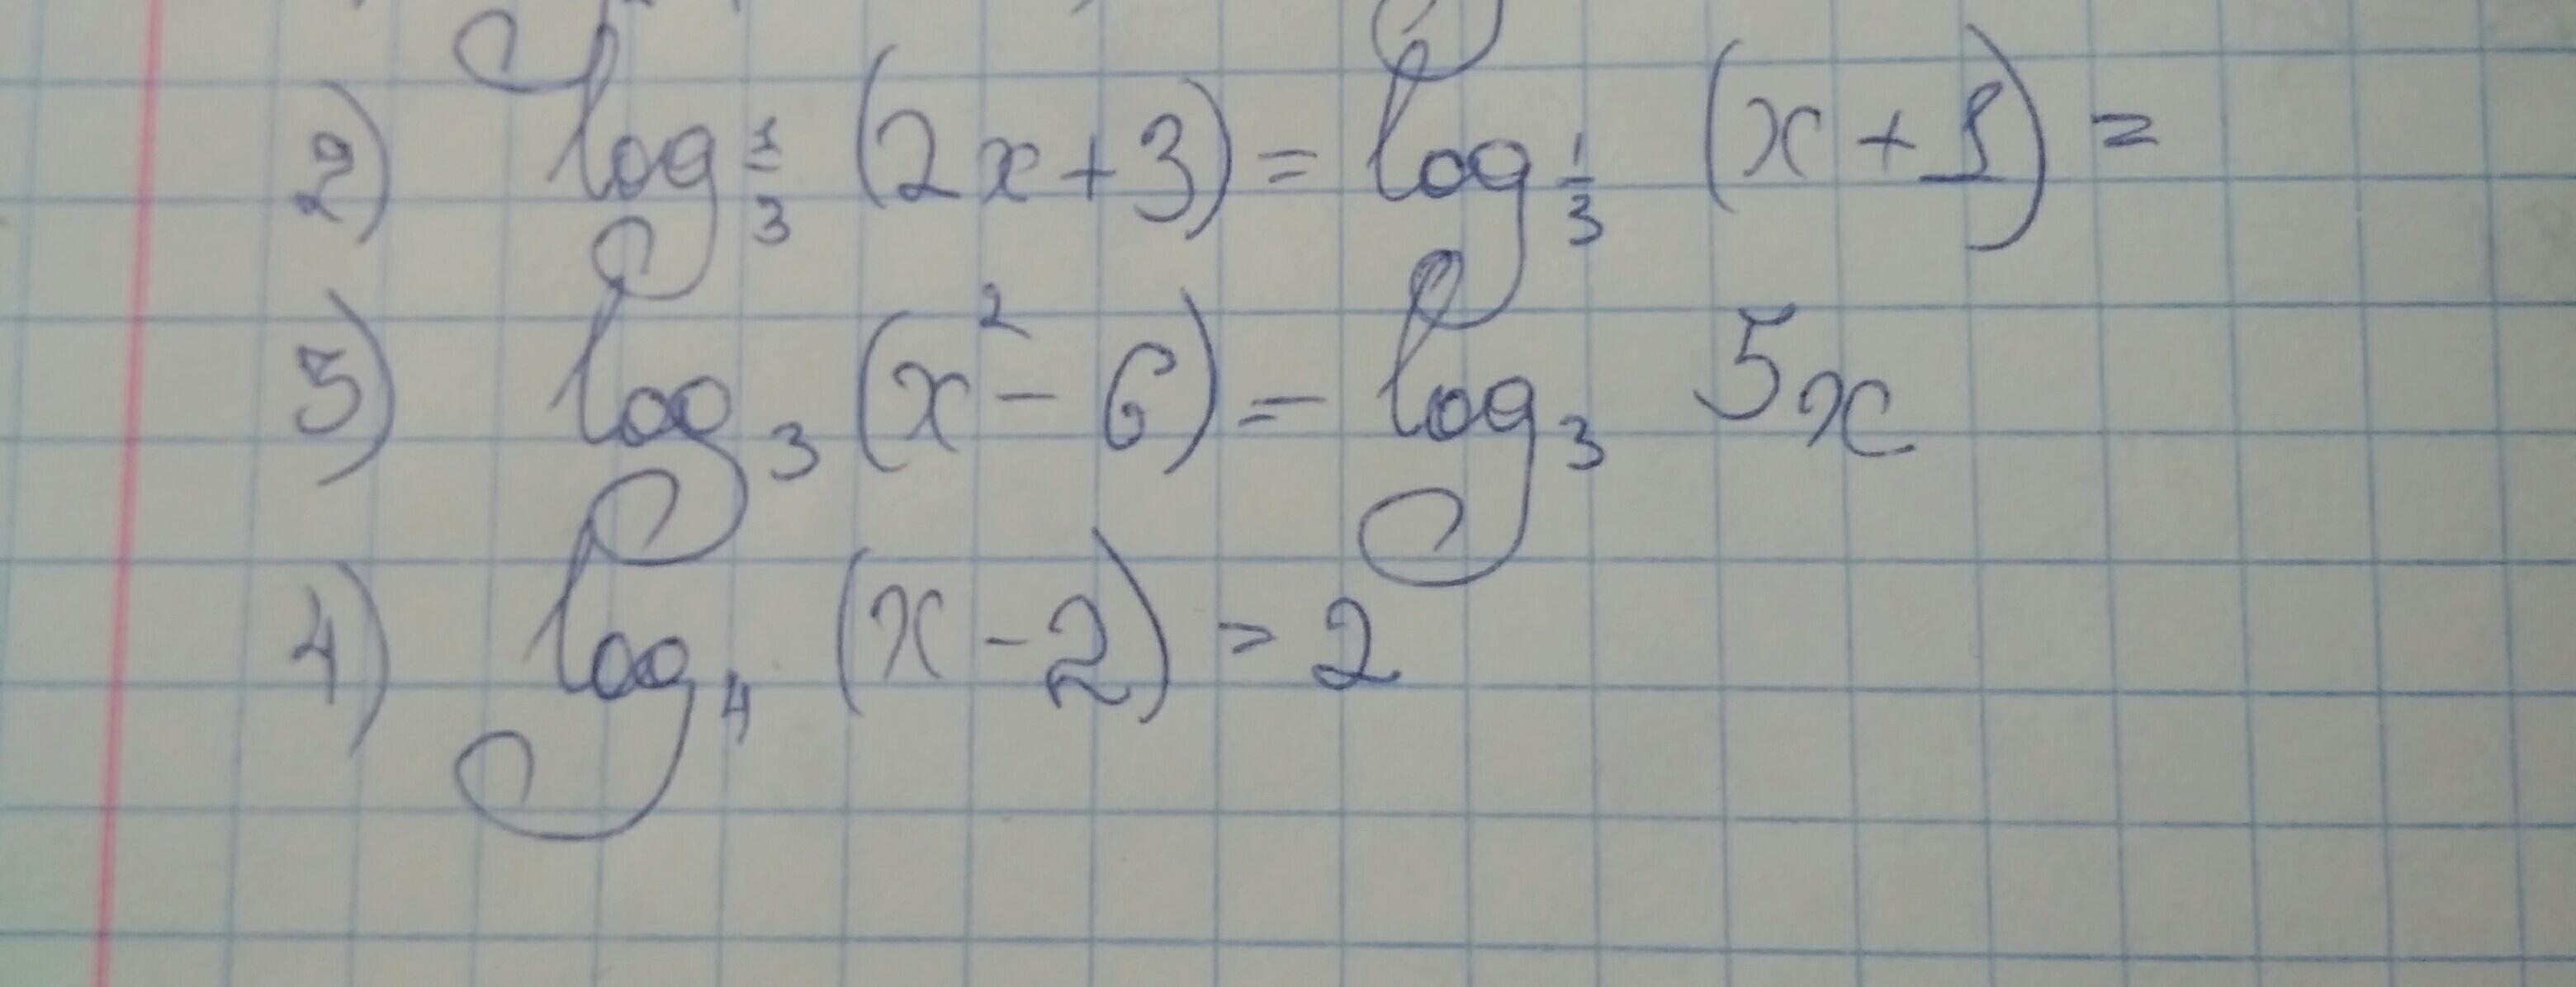 2) log 1/3 (2x+3) = log 1/3 (x+1) =
3) log₃ (x² - 6) = log₃ 5x
4) log₄ (x - 2) = 2